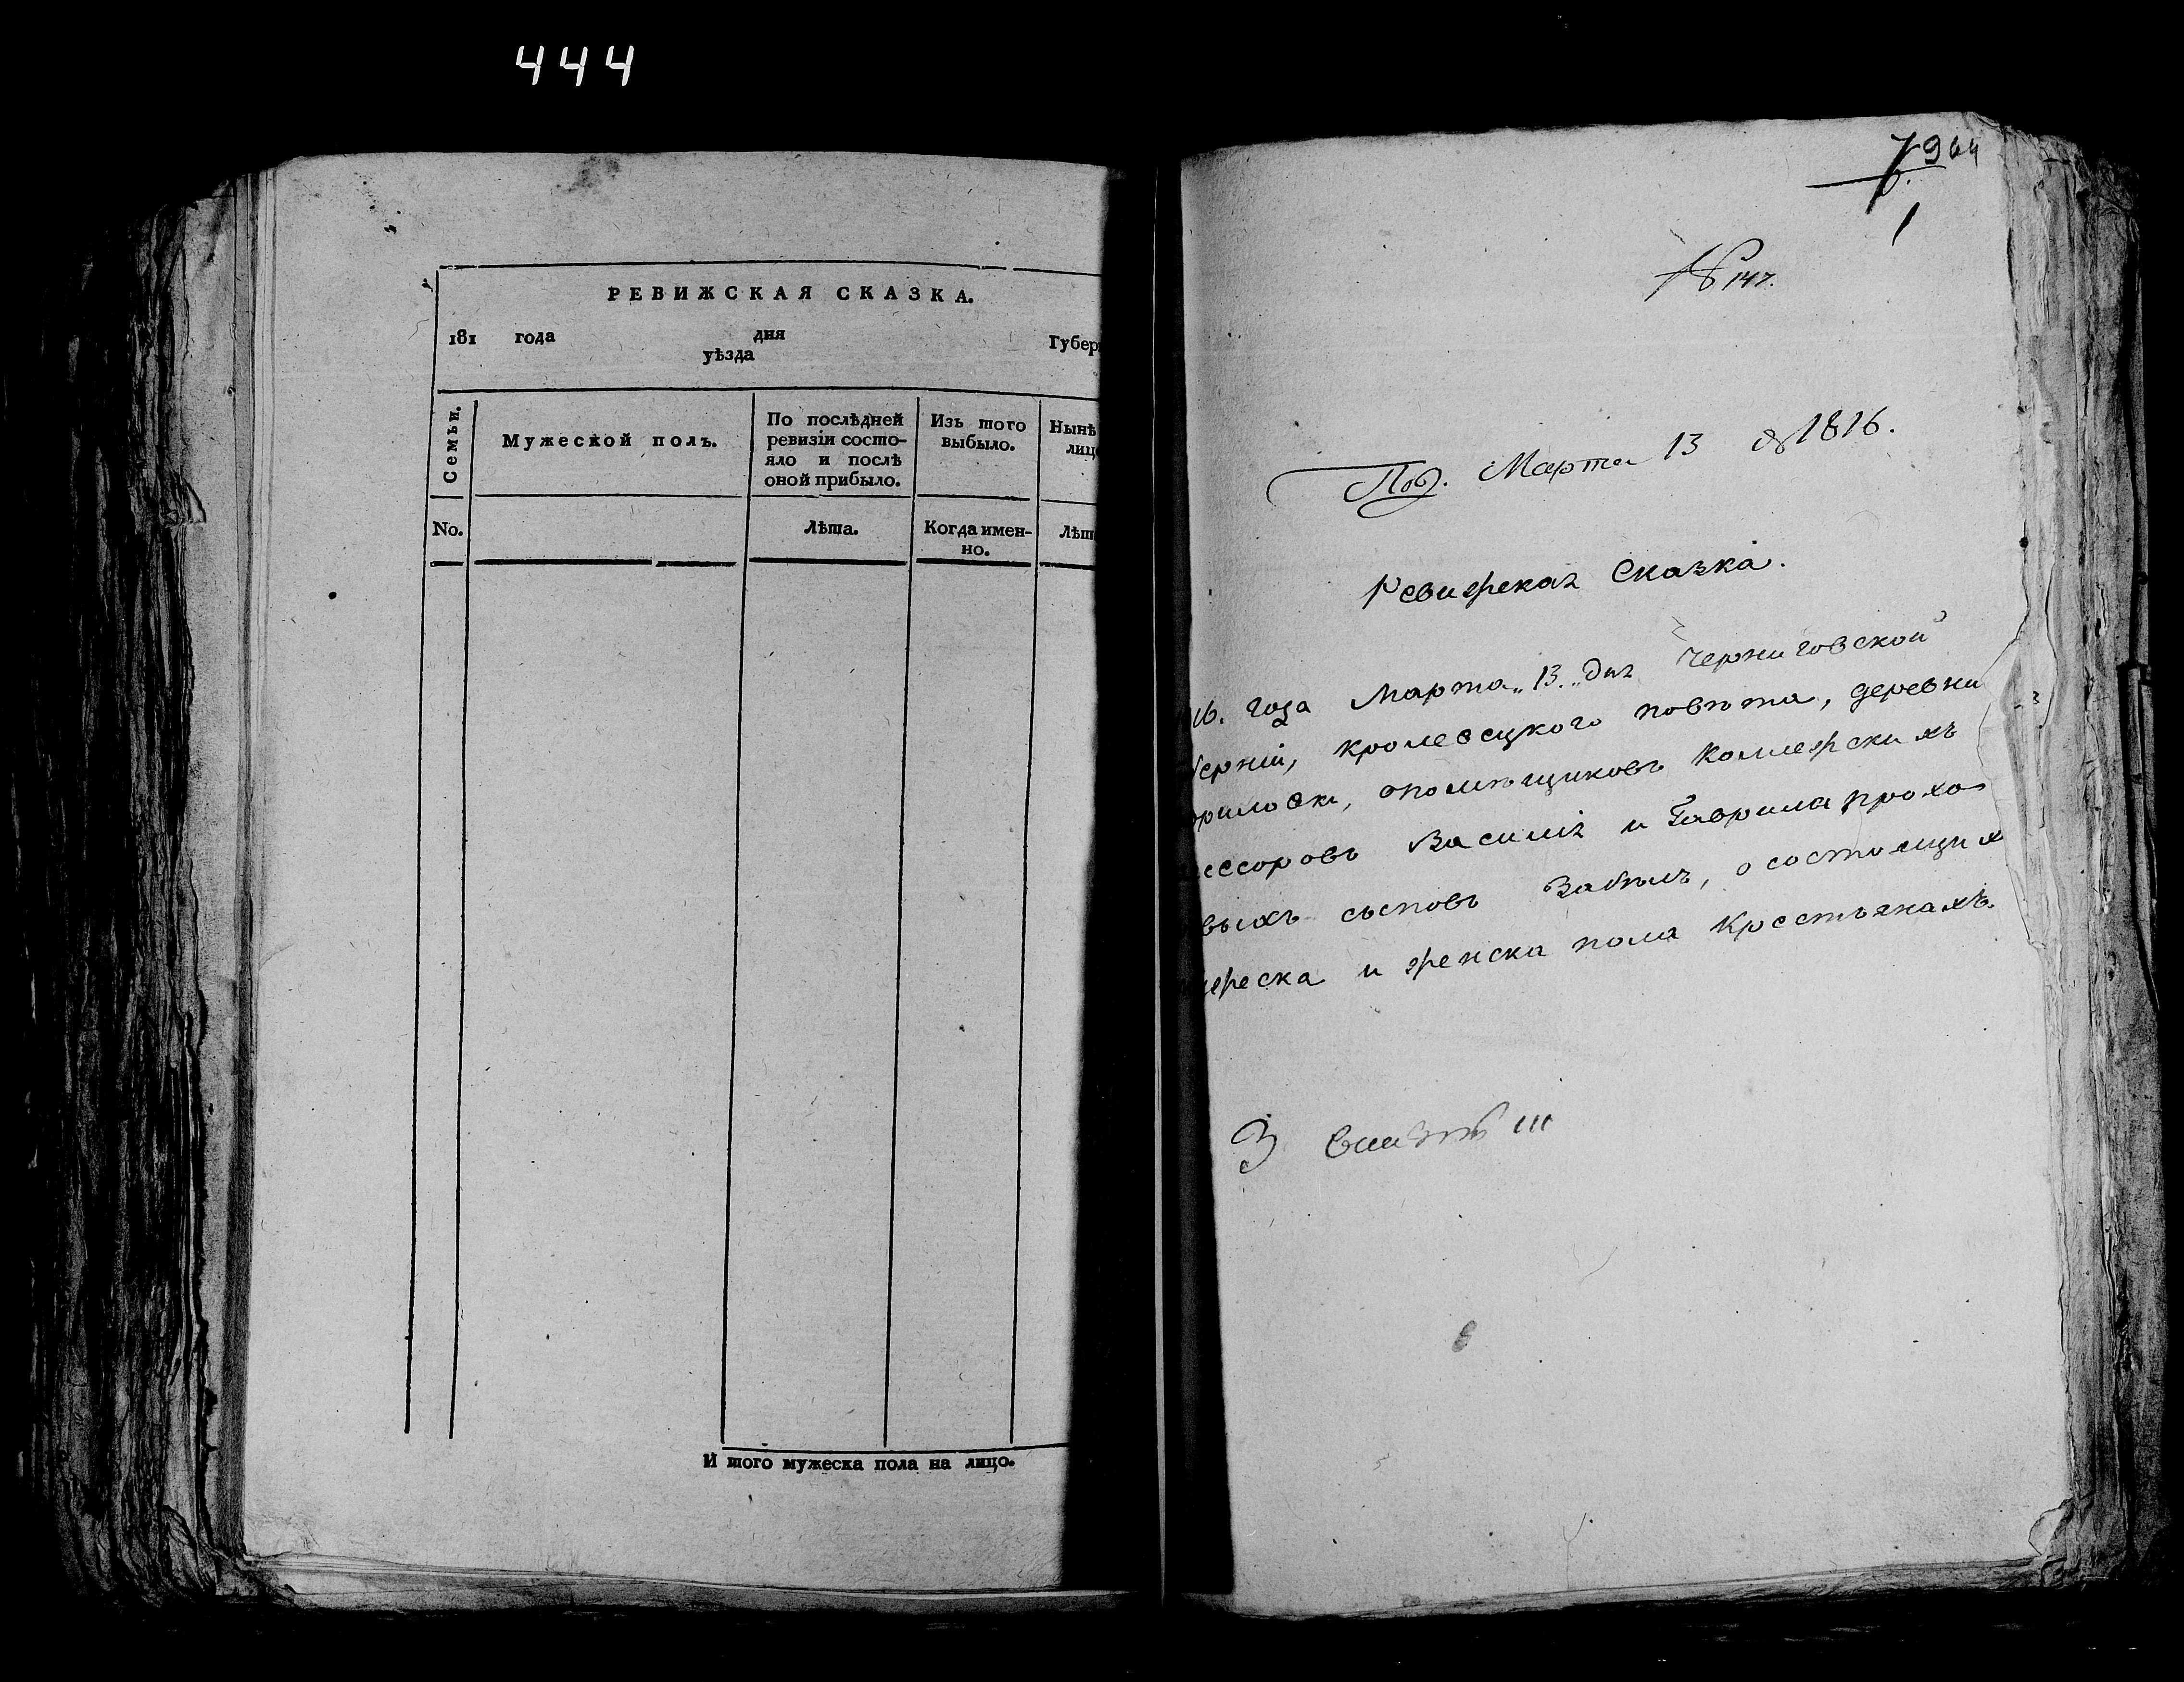 444
РЕВИЖСКАЯ СКАЗКА.
181 года дня Губер
уѣзда
Семьи.
Мужеской полъ.
По послѣдней ревизіи состо-
яло и послѣ
оной прибыло.
Изъ того
выбыло.
Нынѣ
лиц
No.
Лѣта.
Когда имен-
но.
Лѣт
И того мужеска пола на лицо.
964
№ 147.
Под. Марта 13 1816.
Ревижская Сказка.
16. года Марта „13.„ дня Черниговской
берніи, кролевецкого повѣта, деревни
риловки, помѣщиковъ Коллежскихъ
сессоровъ Василія и Гаврила прохо
выхъ сыновъ Забѣлъ, о состоящих
жеска и женска пола Крестьянахъ